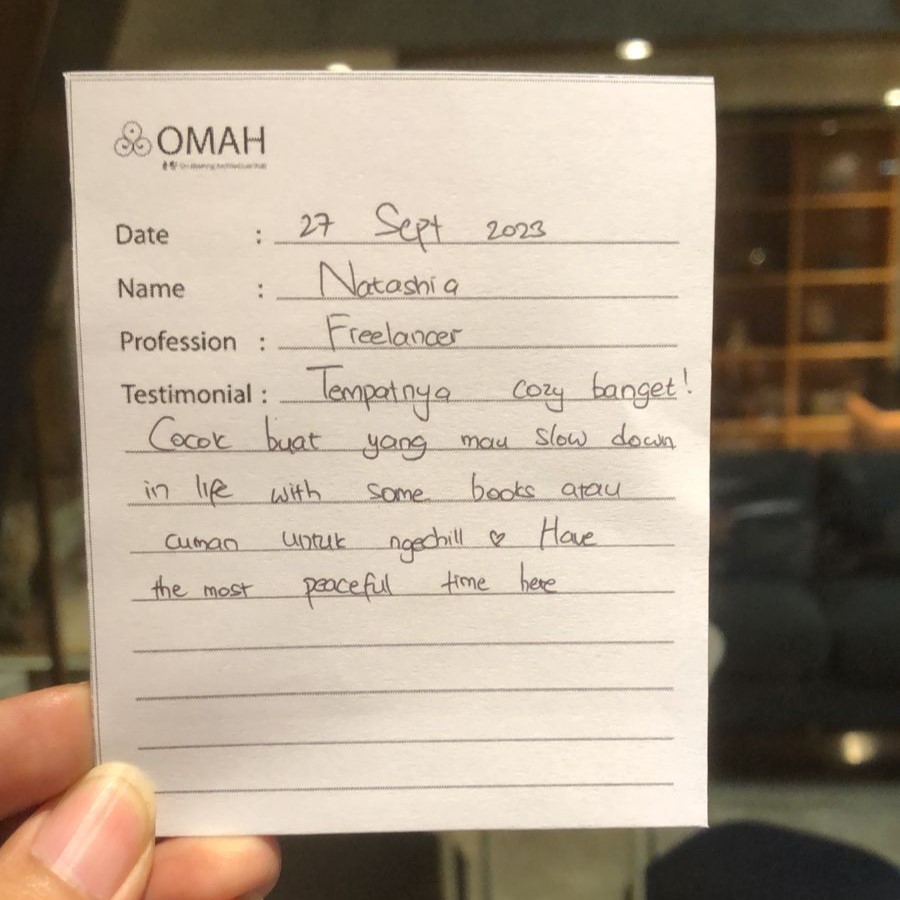 OMAH
Date : 27 Sept 2023
Name : Natashia
Profession : Freelancer
Testimonial : Tempatnya cozy banget!
Cocok buat yang mau slow down
in life with some books atau
cuman untuk ngechill ♡ Have
the most peaceful time here